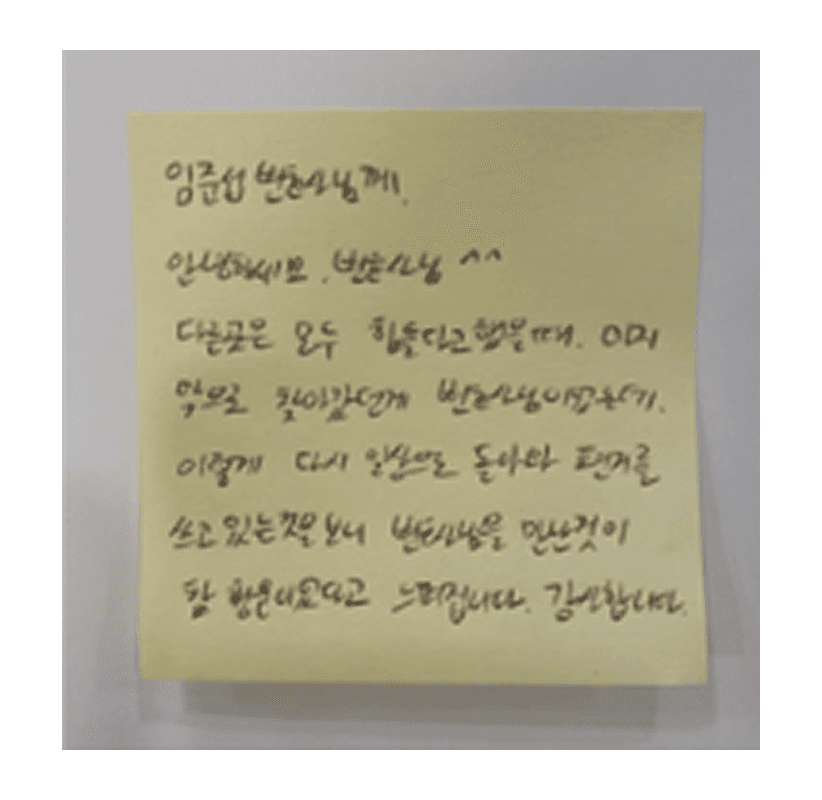 임준섭 변호사님께.
안녕하세요. 변호사님 ^^
다른곳은 모두 힘들다고 했을때.
찾아갔던게 변호사님이셨는데.
이렇게 다시 일상으로 돌아와 편지를
쓰고 있는것을 보니 변호사님을 만난것이
참 행운이었다고 느껴집니다. 감사합니다.